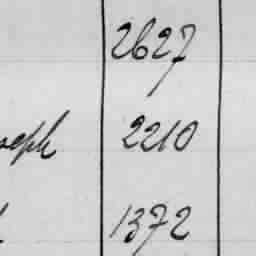 2627
seph 2210
1372